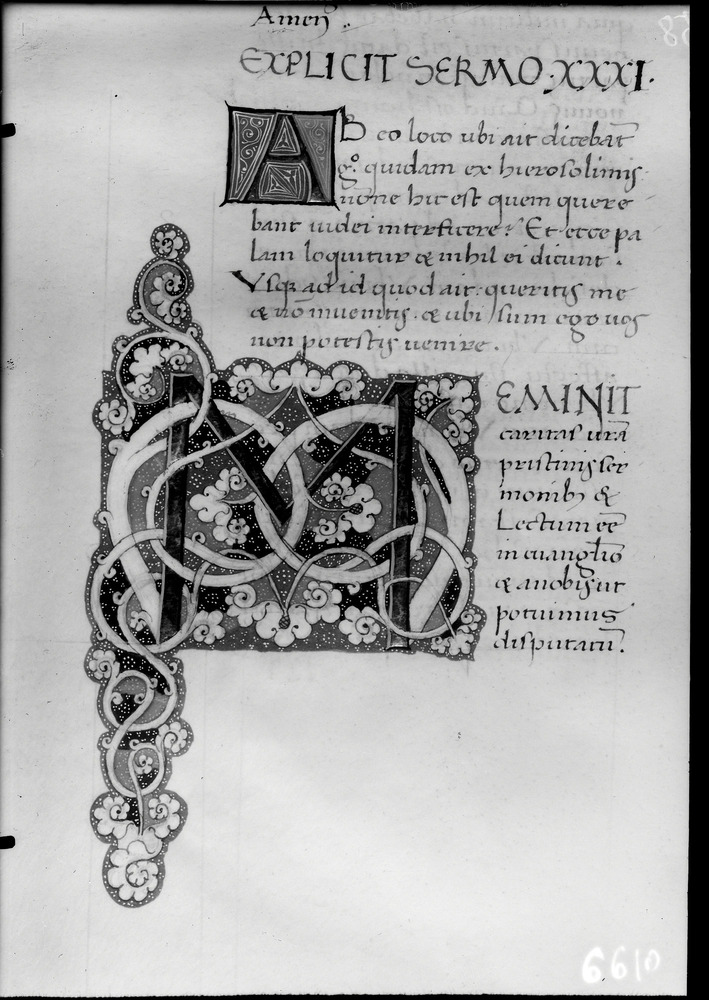 Amen
EXPLICIT SERMO·XXXI·
AB eo loco ubi ait dicebāt
g° quidam ex hierosolimis
nōne hic est quem quere
bant iudei interficere? Et ecce pa
lam loquitur & nihil ei dicunt.
Vsq; ad id quod ait: queritis me
& nō inuenitis. & ubi sum ego uos
non potestis uenire.
MEMINIT
caritas urā
pristinis ser
monib; &
Lectum eē
in euanglio
& anobis ut
potuimus
disputatū.
58
6610